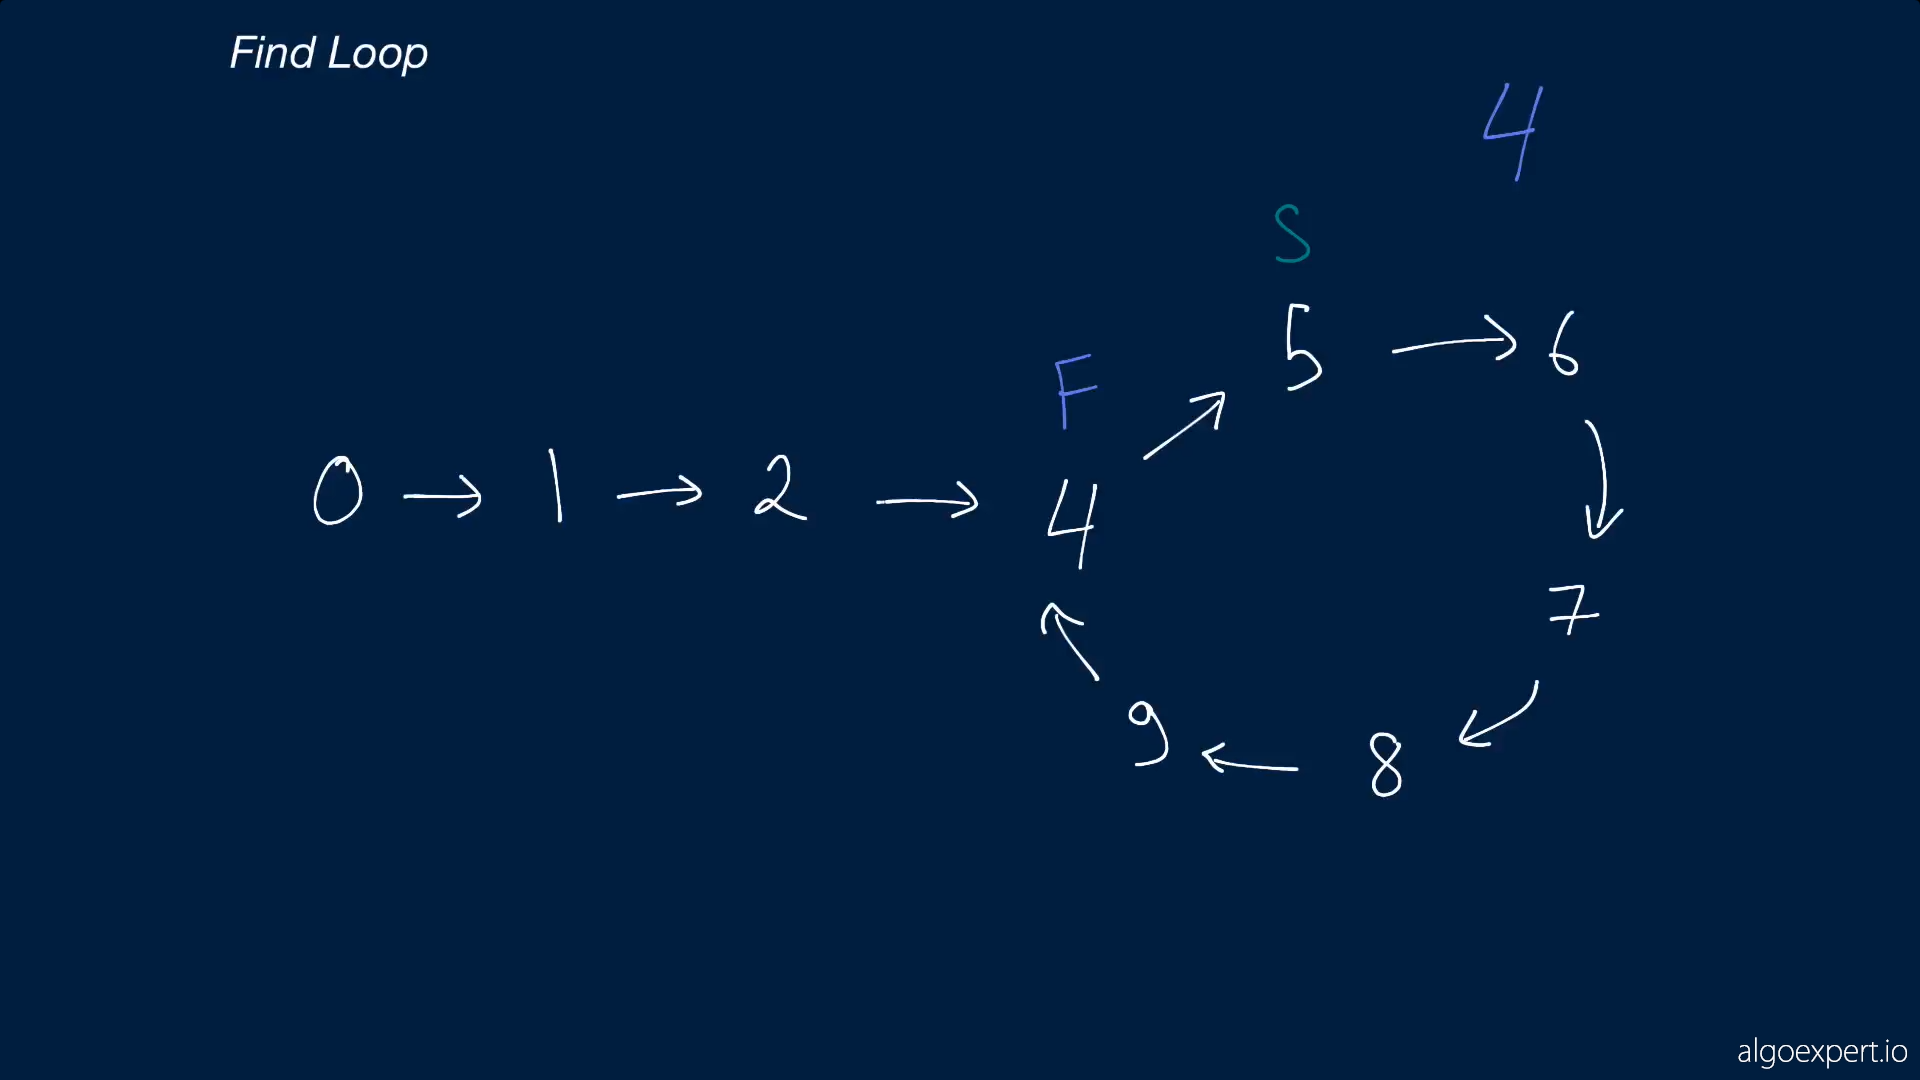 Find Loop
4
S
5 → 6
F
0 → 1 → 2 → 4
7
9 ← 8
algoexpert.io